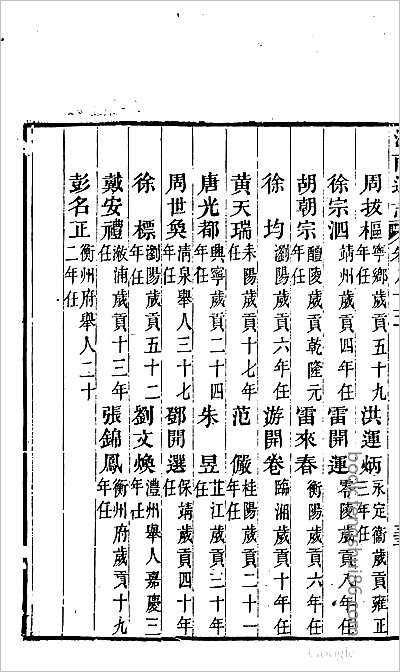 周拔樞 寧鄉歲貢五十九年任 洪運炳 永定衞歲貢雍正三年任
徐宗泗 靖州歲貢四年任 雷開運 零陵歲貢八年任
胡朝宗 醴陵歲貢乾隆元年任 雷來春 衡陽歲貢六年任
徐均 瀏陽歲貢六年任 游開卷 臨湘歲貢十年任
黃天瑞 耒陽歲貢十七年任 范儼 桂陽歲貢二十一年任
唐光都 興寧歲貢二十四年任 朱昱 芷江歲貢三十年任
周世奐 清泉舉人三十七年任 鄧開選 保靖歲貢四十年任
徐標 瀏陽歲貢五十二年任 劉文煥 澧州舉人嘉慶三年任
戴安禮 漵浦歲貢十三年任 張錦鳳 衡州府歲貢十九年任
彭名正 衡州府舉人二十二年任